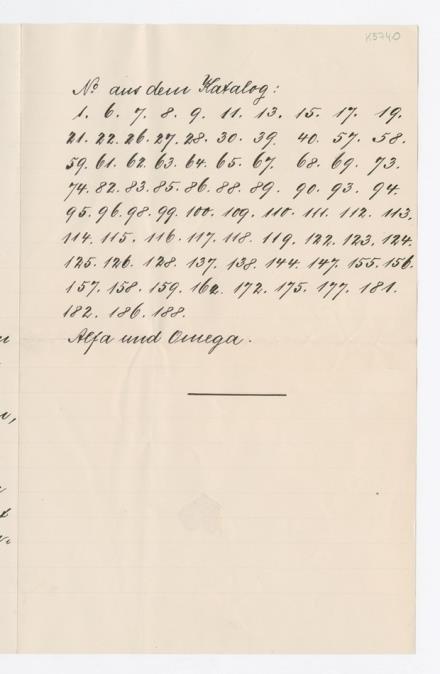 K5740
No aus dem Katalog:
1. 6. 7. 8. 9. 11. 13. 15. 17. 19.
21. 22. 26. 27. 28. 30. 39. 40. 57. 58.
59. 61. 62. 63. 64. 65. 67. 68. 69. 73.
74. 82. 83. 85. 86. 88. 89. 90. 93. 94.
95. 96. 98. 99. 100. 109. 110. 111. 112. 113.
114. 115. 116. 117. 118. 119. 122. 123. 124.
125. 126. 128. 137. 138. 144. 147. 155. 156.
157. 158. 159. 162. 172. 175. 177. 181.
182. 186. 188.
Alfa und Omega.